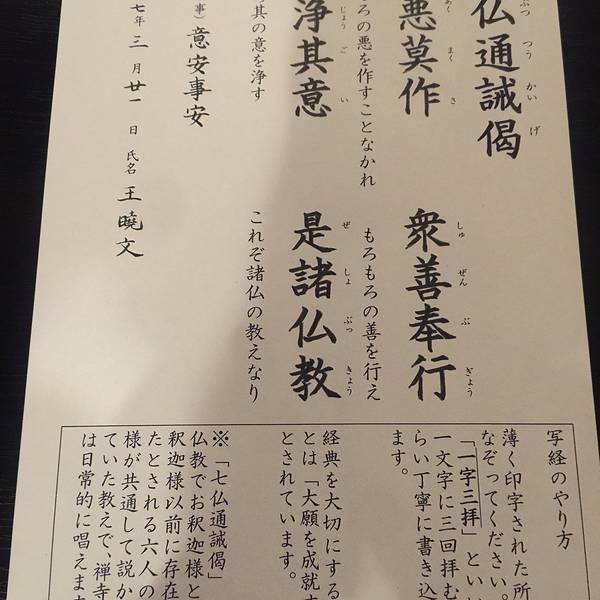 仏通誡偈
ぶつ つう かい げ
悪莫作
あく まく さ
衆善奉行
しゅ ぜん ぶ ぎょう
ろの悪を作すことなかれ
もろもろの善を行え
浄其意
じょう ご い
是諸仏教
ぜ しょ ぶっ きょう
其の意を浄す
これぞ諸仏の教えなり
事）意安事安
七年 三 月 廿一 日 氏名 王曉文
写経のやり方
薄く印字された所
なぞってください。
「一字三拝」といい
一文字に三回拝む
らい丁寧に書き込
ます。
経典を大切にする
とは「大願を成就す
とされています。
※「七仏通誡偈」
仏教でお釈迦様と
釈迦様以前に存在
たとされる六人の
様が共通して説か
ていた教えで、禅寺
は日常的に唱えます